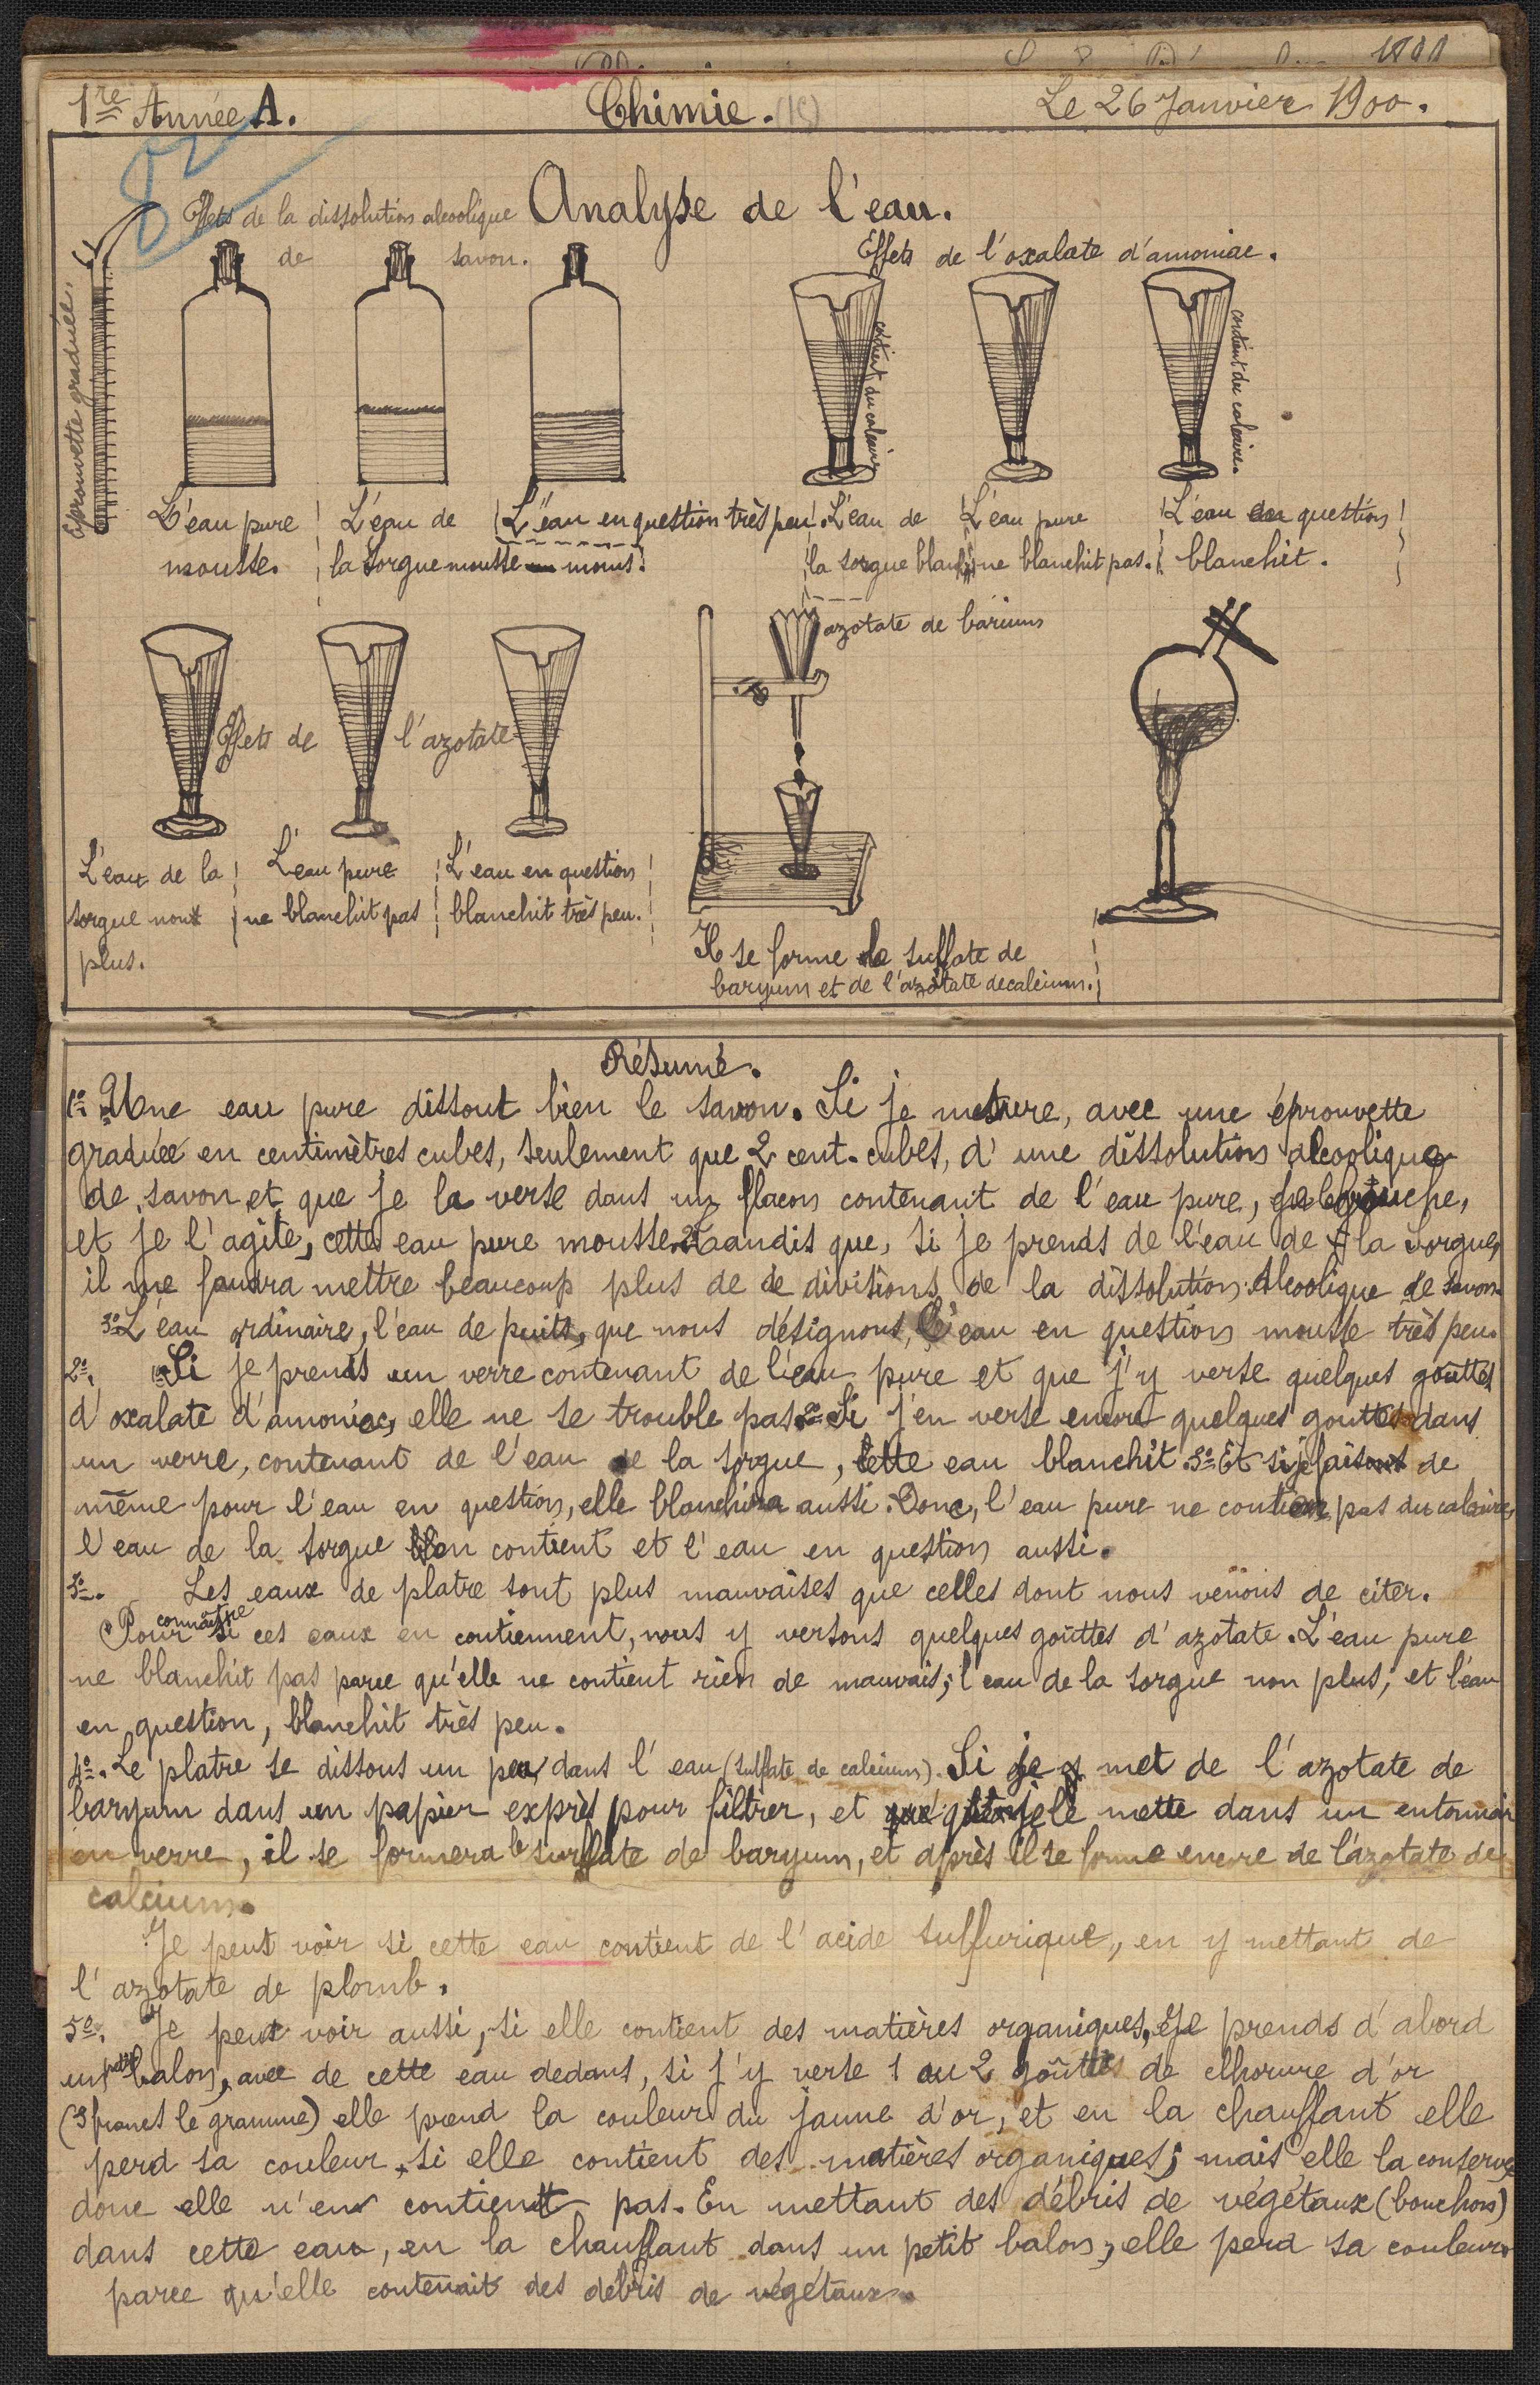 1re Année A. Chimie. Le 26 Janvier 1900.
Analyse de l'eau.
Effets de la dissolution alcoolique
de savon.
Effets de l'oxalate d'amoniac.
Eprouvette graduée.
contient du calcaire
contient du calcaire.
L'eau pure
mousse.
L'eau de
la Sorgue mousse moins.
L'eau en question très peu.
L'eau de
la sorgue blanchit
L'eau pure
ne blanchit pas.
L'eau en question
blanchit.
azotate de barium
Effets de l'azotate
L'eau de la
sorgue non
plus.
L'eau pure
ne blanchit pas
L'eau en question
blanchit très peu.
Il se forme le sulfate de
baryum et de l'azotate de calcium.
Résumé.
1º Une eau pure dissout bien le savon. Si je mesure, avec une éprouvette
graduée en centimètres cubes, seulement que 2 cent. cubes, d'une dissolution alcoolique
de savon et que je la verse dans un flacon contenant de l'eau pure, je le bouche,
et je l'agite, cette eau pure mousse. 2º Tandis que, si je prends de l'eau de la Sorgue,
il me faudra mettre beaucoup plus de de divisions de la dissolution Alcoolique de savon.
3º L'eau ordinaire, l'eau de puits, que nous désignons, l'eau en question mousse très peu.
2º. 1º Si je prends un verre contenant de l'eau pure et que j'y verse quelques gouttes
d'oxalate d'amoniac, elle ne se trouble pas. 2º Si j'en verse encore quelques gouttes dans
un verre, contenant de l'eau de la sorgue, cette eau blanchit. 3º Et si je faisais de
même pour l'eau en question, elle blanchira aussi. Donc, l'eau pure ne contient pas du calcaire,
l'eau de la sorgue en contient et l'eau en question aussi.
3º. Les eaux de platre sont plus mauvaises que celles dont nous venons de citer.
Pour connaître si ces eaux en contiennent, nous y versons quelques goûttes d'azotate. L'eau pure
ne blanchit pas parce qu'elle ne contient rien de mauvais; l'eau de la sorgue non plus, et l'eau
en question, blanchit très peu.
4º. Le platre se dissous un peu dans l'eau (sulfate de calcium). Si je met de l'azotate de
baryum dans un papier exprès pour filtrer, et que je le mette dans un entonnoir
en verre, il se formera le sulfate de baryum, et après il se forme encore de l'azotate de
calcium.
Je peut voir si cette eau contient de l'acide sulfurique, en y mettant de
l'azotate de plomb.
5º. Je peut voir aussi, si elle contient des matières organiques, Je prends d'abord
un petit balon, avec de cette eau dedans, si j'y verse 1 ou 2 goûttes de clhorure d'or
(3 francs le gramme) elle prend la couleur du jaune d'or, et en la chauffant elle
perd sa couleur, si elle contient des matières organiques; mais elle la conserve
donc elle n'en contient pas. En mettant des débris de végétaux (bouchons)
dans cette eau, en la chauffant dans un petit balon, elle perd sa couleur
parce qu'elle contenait des débris de végétaux.